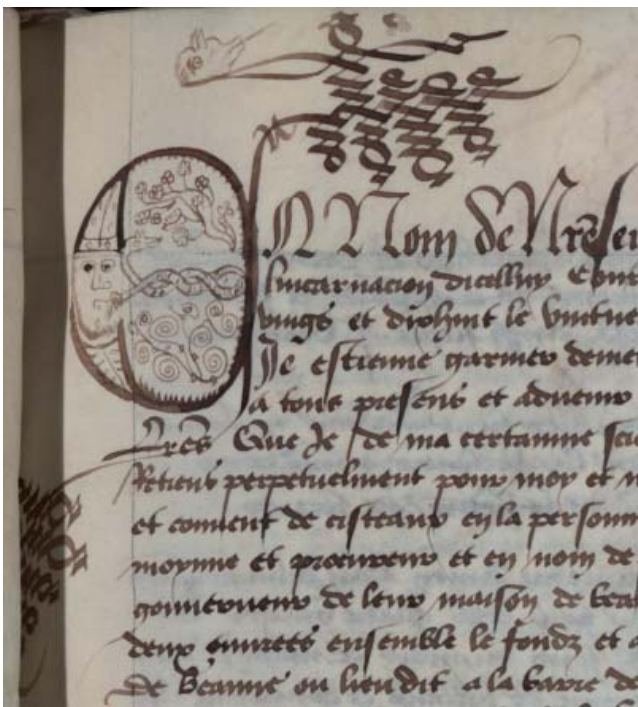 On Nom de Nr̃e sei
lincarnacion dicelluy Cour
vings et dixhuit le vintue
Je estienne garnier deme
a tous presens et advenir
Lr̃es Que Je de ma certainne scie
Retiens perpetuelment pour moy et m
et convent de cisteaux en la personn
moynne et procureur et en nom de
gouverneur de leur maison de bea
deux ouvrees ensemble le fondz et
de Beaune ou lieu dit a la barre de